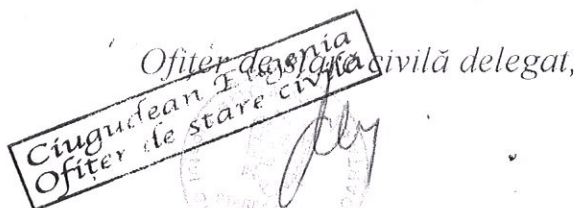 Ofițer de stare civilă delegat,
Ciugudean Eugenia
Ofițer de stare civilă